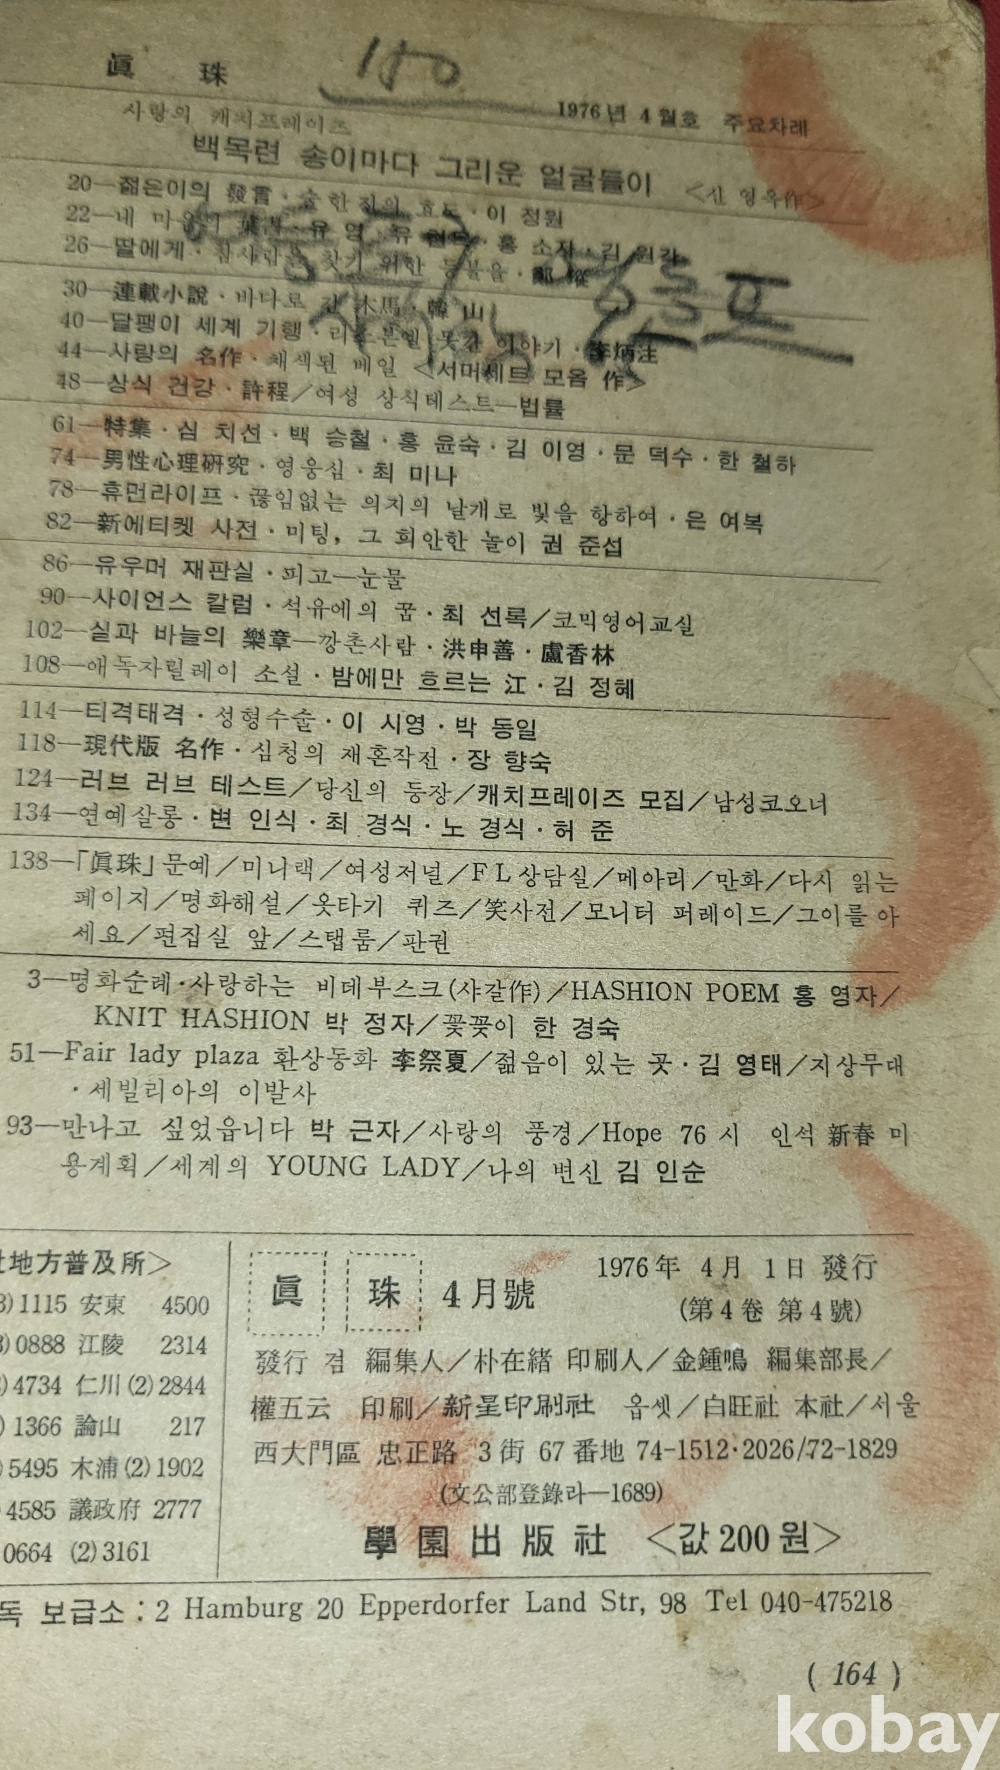 眞 珠 150
1976년 4월호 주요차례
사랑의 캐치프레이즈
백목련 송이마다 그리운 얼굴들이 <신 영옥作>
20—젊은이의 發言·술 한잔의 효도·이 정원
22—내 마음의 유 영·유 홍 소자·김 원각
26—딸에게·참사랑을 찾기 위한 등불을·鄭
30—連載小說·바다로 간 木馬·韓 山
40—달팽이 세계 기행·리 못간 이야기·李炳注
44—사랑의 名作·채색된 베일 <서머세트 모옴 作>
48—상식 건강·許程/여성 상식테스트—법률
61—特集·심 치선·백 승철·홍 윤숙·김 이영·문 덕수·한 철하
74—男性心理硏究·영웅심·최 미나
78—휴먼라이프·끊임없는 의지의 날개로 빛을 향하여·은 여복
82—新에티켓 사전·미팅, 그 희안한 놀이 권 준섭
86—유우머 재판실·피고—눈물
90—사이언스 칼럼·석유에의 꿈·최 선록/코믹영어교실
102—실과 바늘의 樂章—깡촌사람·洪申善·盧香林
108—애독자릴레이 소설·밤에만 흐르는 江·김 정혜
114—티격태격·성형수술·이 시영·박 동일
118—現代版 名作·심청의 재혼작전·장 향숙
124—러브 러브 테스트/당신의 등장/캐치프레이즈 모집/남성코오너
134—연예살롱·변 인식·최 경식·노 경식·허 준
138—「眞珠」문예/미니랙/여성저널/FL상담실/메아리/만화/다시 읽는
페이지/명화해설/윷타기 퀴즈/笑사전/모니터 퍼레이드/그이를 아
세요/편집실 앞/스탭룸/판권
3—명화순례·사랑하는 비데부스크(샤갈作)/HASHION POEM 홍 영자/
KNIT HASHION 박 정자/꽃꽂이 한 경숙
51—Fair lady plaza 환상동화 李祭夏/젊음이 있는 곳·김 영태/지상무대
·세빌리아의 이발사
93—만나고 싶었읍니다 박 근자/사랑의 풍경/Hope 76 시 인석 新春 미
용계획/세계의 YOUNG LADY/나의 변신 김 인순
地方普及所>
3)1115 安東 4500
0888 江陵 2314
)4734 仁川(2)2844
)1366 論山 217
)5495 木浦(2)1902
4585 議政府 2777
0664 (2)3161
眞 珠 4月號
1976年 4月 1日 發行
(第4卷 第4號)
發行 겸 編集人/朴在緖 印刷人/金鍾鳴 編集部長/
權五云 印刷/新星印刷社 옵셋/白旺社 本社/서울
西大門區 忠正路 3街 67番地 74-1512·2026/72-1829
(文公部登錄라—1689)
學園出版社 <값 200원>
독 보급소 : 2 Hamburg 20 Epperdorfer Land Str, 98 Tel 040-475218
(164)
kobay